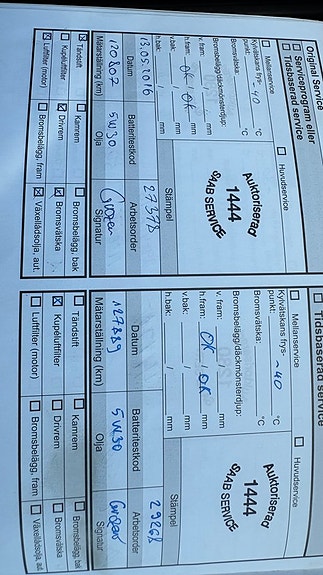 Original Service
Serviceprogram eller
Tidsbaserad service
Mellanservice
Huvudservice
Kylvätskans frys-
punkt: -40 °C
Bromsvätska: °C
Bromsbelägg/däckmönsterdjup:
v. fram: / mm
h.fram: OK / OK mm
v.bak: / mm
h.bak: / mm
Auktoriserad
1444
SAAB SERVICE
Stämpel
13.05.2016
27318
Datum
Batteritestkod
Arbetsorder
120807
5W30
Mätarställning (km)
Olja
Signatur
Tändstift
Kamrem
Bromsbelägg, bak
Kupéluftfilter
Drivrem
Bromsvätska
Luftfilter (motor)
Bromsbelägg, fram
Växellådsolja, aut.
Tidsbaserad service
Mellanservice
Huvudservice
Kylvätskans frys-
punkt: -40 °C
Bromsvätska: °C
Bromsbelägg/däckmönsterdjup:
v. fram: / mm
h.fram: OK / OK mm
v.bak: / mm
h.bak: / mm
Auktoriserad
1444
SAAB SERVICE
Stämpel
29268
Datum
Batteritestkod
Arbetsorder
127889
5W30
Mätarställning (km)
Olja
Signatur
Tändstift
Kamrem
Bromsbelägg, bak
Kupéluftfilter
Drivrem
Bromsvätska
Luftfilter (motor)
Bromsbelägg, fram
Växellådsolja, aut.